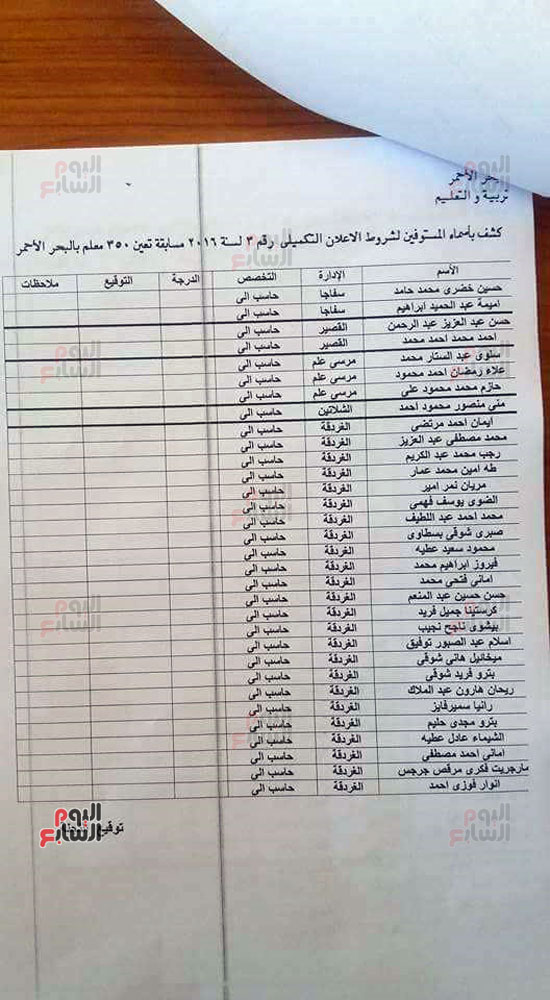 البحر الأحمر
تربية و التعليم
كشف بأسماء المستوفين لشروط الاعلان التكميلى رقم ٣ لسنة ٢٠١٦ مسابقة تعين ٣٥٠ معلم بالبحر الأحمر
الأسم الإدارة التخصص الدرجة التوقيع ملاحظات
حسين خضرى محمد حامد سفاجا حاسب الى
اميمة عبد الحميد ابراهيم سفاجا حاسب الى
حسن عبد العزيز عبد الرحمن القصير حاسب الى
احمد محمد احمد محمد القصير حاسب الى
سلوى عبد الستار محمد مرسى علم حاسب الى
علاء رمضان احمد محمود مرسى علم حاسب الى
حازم محمد محمود على مرسى علم حاسب الى
منى منصور محمود احمد الشلاتين حاسب الى
ايمان احمد مرتضى الغردقة حاسب الى
محمد مصطفى عبد العزيز الغردقة حاسب الى
رجب محمد عبد الكريم الغردقة حاسب الى
طه امين محمد عمار الغردقة حاسب الى
مريان نمر امير الغردقة حاسب الى
الضوى يوسف فهمى الغردقة حاسب الى
محمد احمد عبد اللطيف الغردقة حاسب الى
صبرى شوقى بسطاوى الغردقة حاسب الى
محمود سعيد عطيه الغردقة حاسب الى
فيروز ابراهيم محمد الغردقة حاسب الى
امانى فتحي محمد الغردقة حاسب الى
حسن حسين عبد المنعم الغردقة حاسب الى
كرستينا جميل فريد الغردقة حاسب الى
بيشوى ناجح نجيب الغردقة حاسب الى
اسلام عبد الصبور توفيق الغردقة حاسب الى
ميخائيل هاني شوقى الغردقة حاسب الى
بترو فريد شوقى الغردقة حاسب الى
ريحان هارون عبد الملاك الغردقة حاسب الى
رانيا سميرفايز الغردقة حاسب الى
بترو مجدى حليم الغردقة حاسب الى
الشيماء عادل عطيه الغردقة حاسب الى
امانى احمد مصطفى الغردقة حاسب الى
مارجريت فكرى مرقص جرجس الغردقة حاسب الى
انوار فوزى احمد الغردقة حاسب الى
توقيع
اليوم السابع